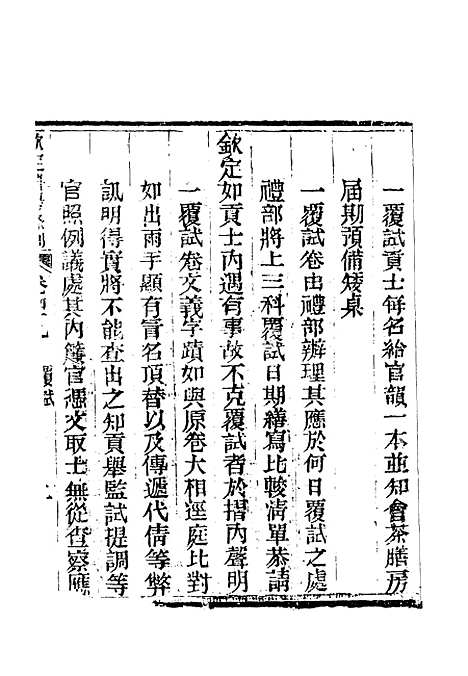 一覆試貢士每名給官韻一本並知會茶膳房
屆期預備矮桌
一覆試卷由禮部辦理其應於何日覆試之處
禮部將上三科覆試日期繕寫比較清單恭請
欽定如貢士內遇有事故不克覆試者於摺內聲明
一覆試卷文義字蹟如與原卷大相逕庭比對
如出兩手顯有冒名頂替以及傳遞代倩等弊
訊明得實將不能查出之知貢舉監試提調等
官照例議處其內簾官憑文取士無從查察應
覆試